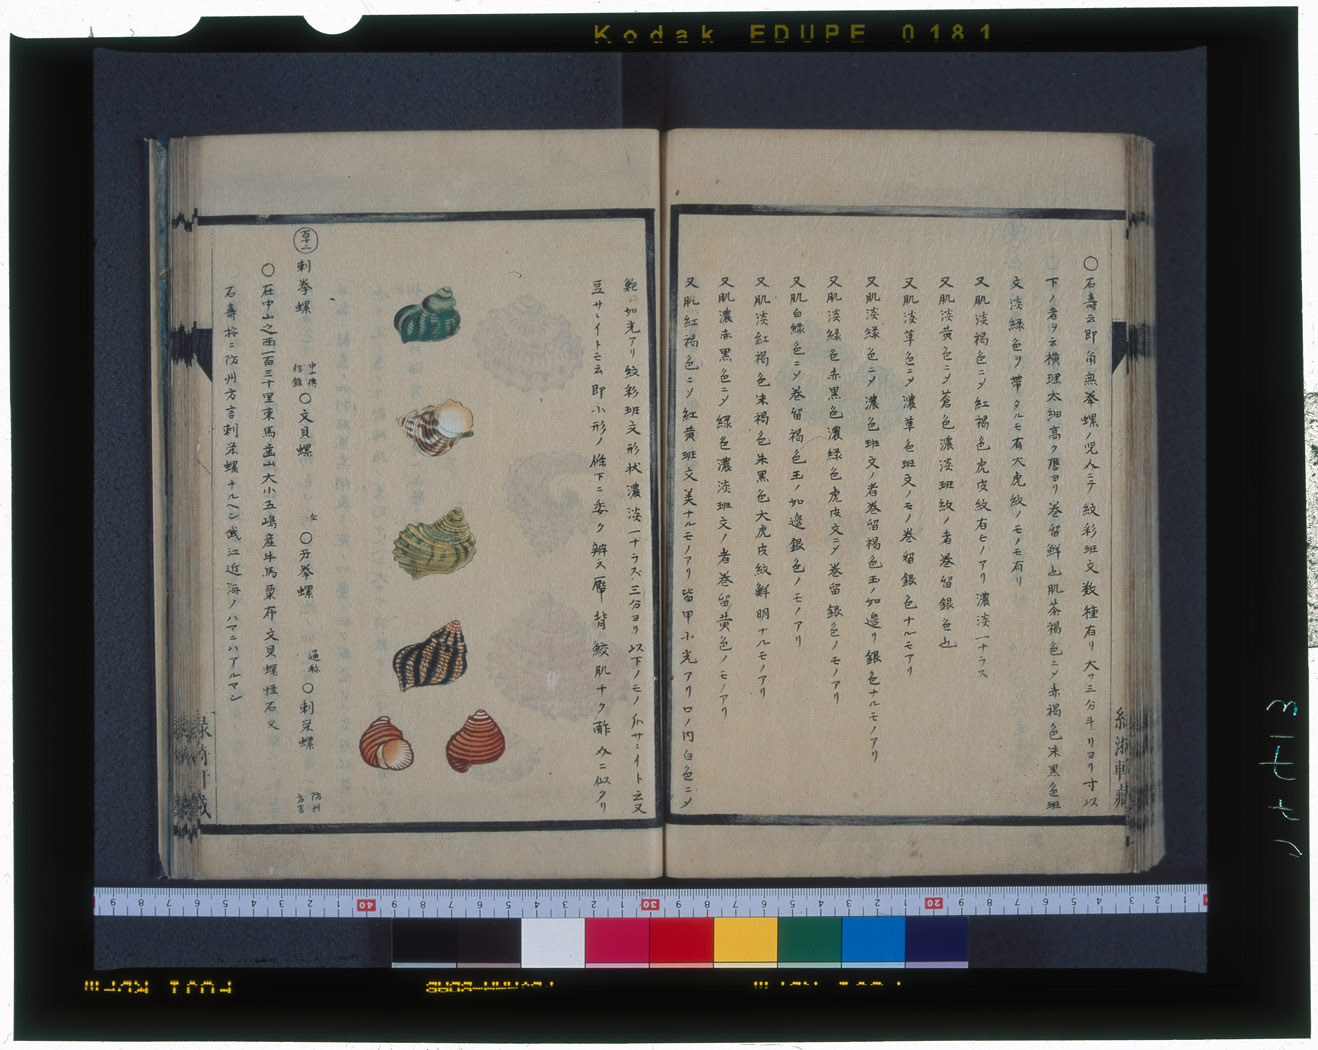 Kodak EDUPE 0181
〇石壽云即角無拳螺ノ児ニテ紋彩班文数種有リ大サ三分半リヨリ寸以
下ノ者ヲ云横理太細高ク歴ヨリ巻留鮮也肌茶褐色ニメ赤褐色朱黒色班
文淡緑色ヲ帯タルモ有大虎紋ノモノモ有リ
又肌淡褐色ニメ紅褐色虎皮紋有モノアリ濃淡一ナラス
又肌淡黄色ニメ蒼色濃淡班紋ノ者巻留銀色也
又肌淡草色ニメ濃草色班文ノモノ巻留銀色ナルモアリ
又肌淡緑色ニメ濃色班文ノ者巻留褐色玉ノ如邉リ銀色ナルモノアリ
又肌淡緑色赤黒色濃緑色虎皮文ニメ巻留銀色ノモノアリ
又肌白緑色ニメ巻留褐色玉ノ如邉銀色ノモノアリ
又肌淡紅褐色朱褐色朱黒色大虎皮紋鮮明ナルモノアリ
又肌濃赤黒色ニメ緑色濃淡班文ノ者巻留黄色ノモノアリ
又肌紅褐色ニメ紅黄班文美ナルモノアリ皆甲小光アリ口ノ内白色ニメ
如光アリ紋彩班文形状濃淡一ナラズ三分ヨリ以下ノモノサヽイト云又
豆サヽイトモ云即小形ノ條下ニ委ク辨ス厴背鮫肌ナク酢ニ似タリ
百十一 刺拳螺 中山傳信録 〇文貝螺 仝 〇刅拳螺 通称 〇刺栄螺 防州方言
〇在中山之西一百三十里東馬歯山大小五嶋産牛馬粟布文貝螺怪石又
石壽按ニ防州方言刺栄螺ナルヘシ武江近海ノハマニハアルマシ
9 8 7 6 5 4 3 2 1 40 9 8 7 6 5 4 3 2 1 30 9 8 7 6 5 4 3 2 1 20 9 8 7 6 5 4 3 2 1